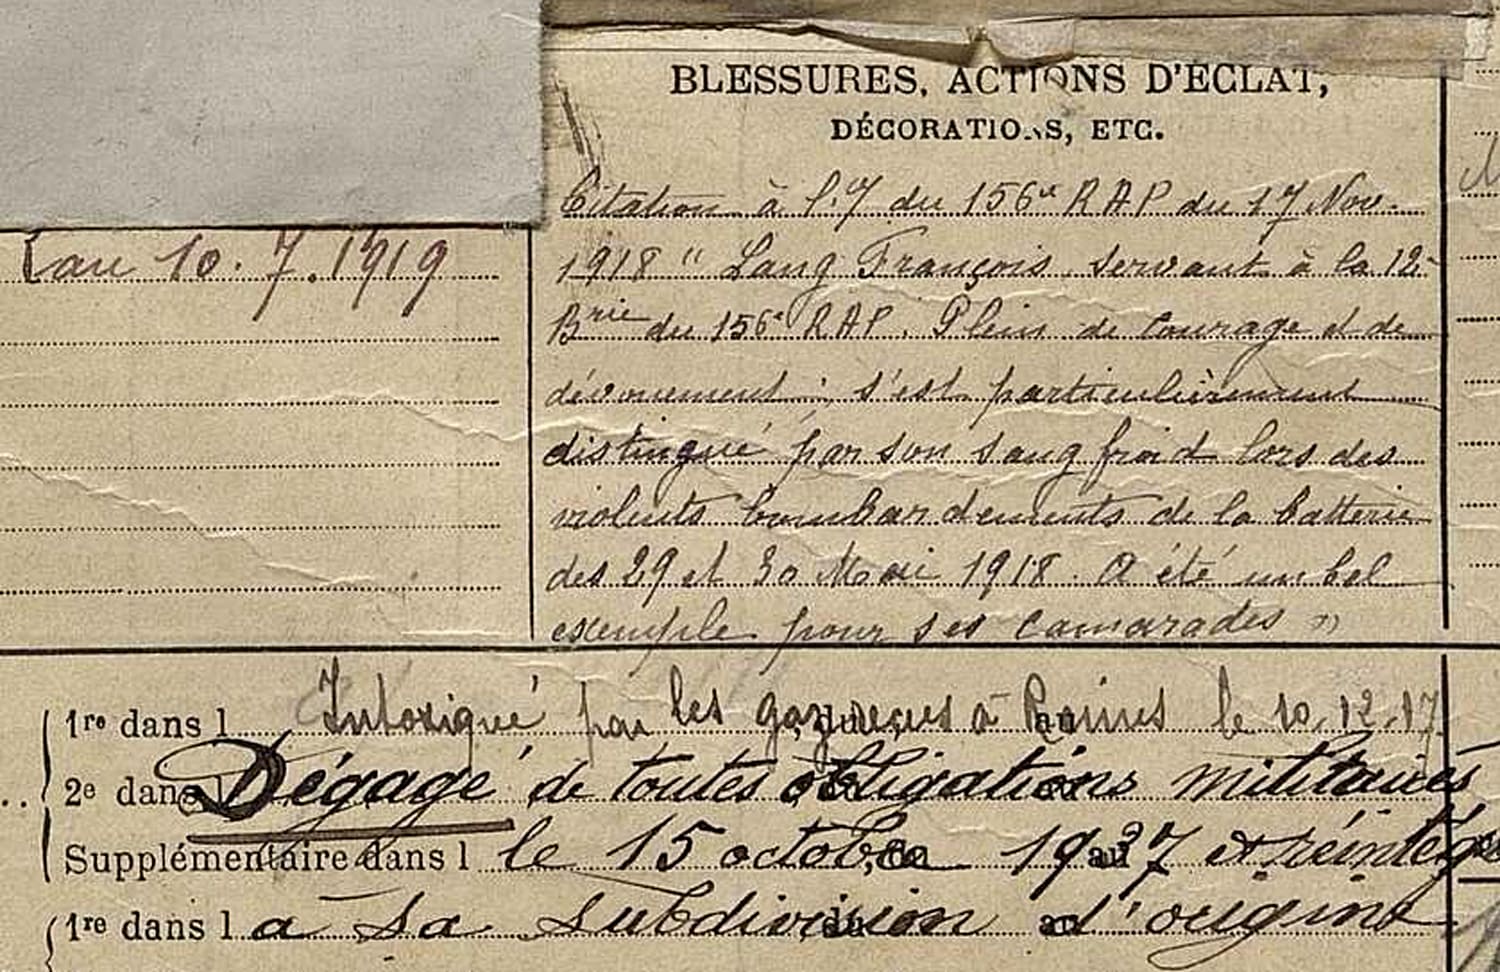 BLESSURES, ACTIONS D'ÉCLAT,
DÉCORATIONS, ETC.
au 10.7.1919
Citation à l'. du 156e RAP du 17 Nov.
1918 " Lang François servant à la 12e
Brie du 156e RAP. Plein de courage et de
dévouement ; s'est particulièrement
distingué par son sang froid lors des
violents bombardements de la batterie
des 29 et 30 Mai 1918. A été un bel
exemple pour ses camarades "
1re dans l Intoxiqué par les gaz reçus à Reims le 10.12.17
2e dans l Dégagé de toutes obligations militaires
Supplémentaire dans l le 15 octobre 1937 et réintégré
1re dans l a sa subdivision d'origine